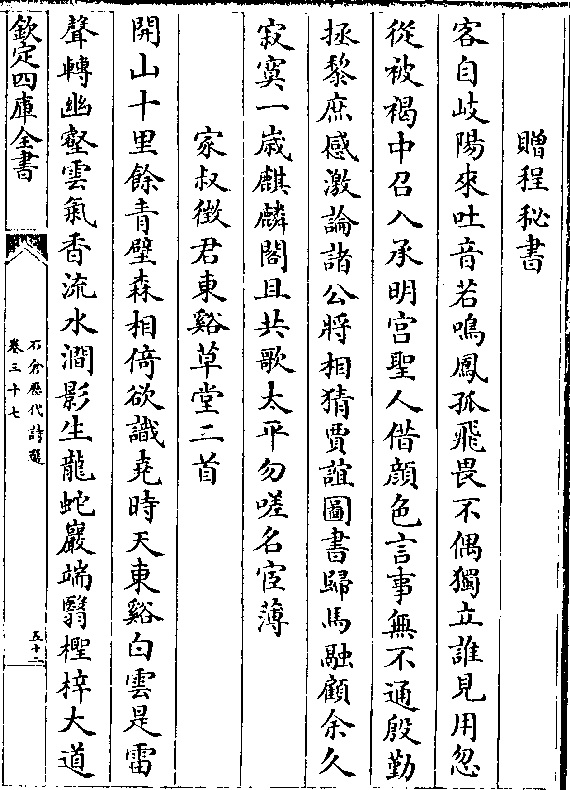 贈程秘書
客自岐陽來吐音若鳴鳳孤飛畏不偶獨立誰見用忽
從被褐中召入承明宮聖人借顔色言事無不通殷勤
拯黎庶感激論諸公將相猜賈誼圖書歸馬融顧余久
寂寞一歳麒麟閣且共歌太平勿嗟名宦薄
家叔徴君東谿草堂二首
開山十里餘青壁森相倚欲識堯時天東谿白雲是雷
聲轉幽壑雲氣香流水澗影生龍蛇巖端翳檉梓大道
欽定四庫全書
石倉歷代詩選
卷三十七
五十二